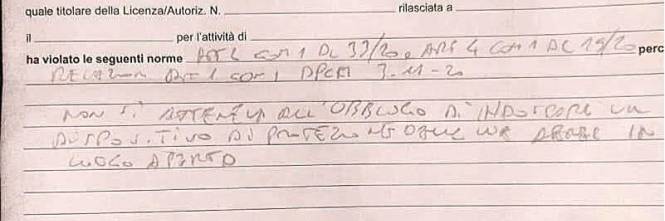 quale titolare della Licenza/Autoriz. N. rilasciata a
il per l'attività di
ha violato le seguenti norme ART 1 COM 1 DL 33/20 e ART 4 COM 1 DL 19/20 perc
ART 1 COM 1 DPCM 3-11-20
NON SI ATTENEVA ALL'OBBLIGO DI INDOSSARE UN
DISPOSITIVO DI PROTEZIONE DELLE VIE AEREE IN
LUOGO APERTO